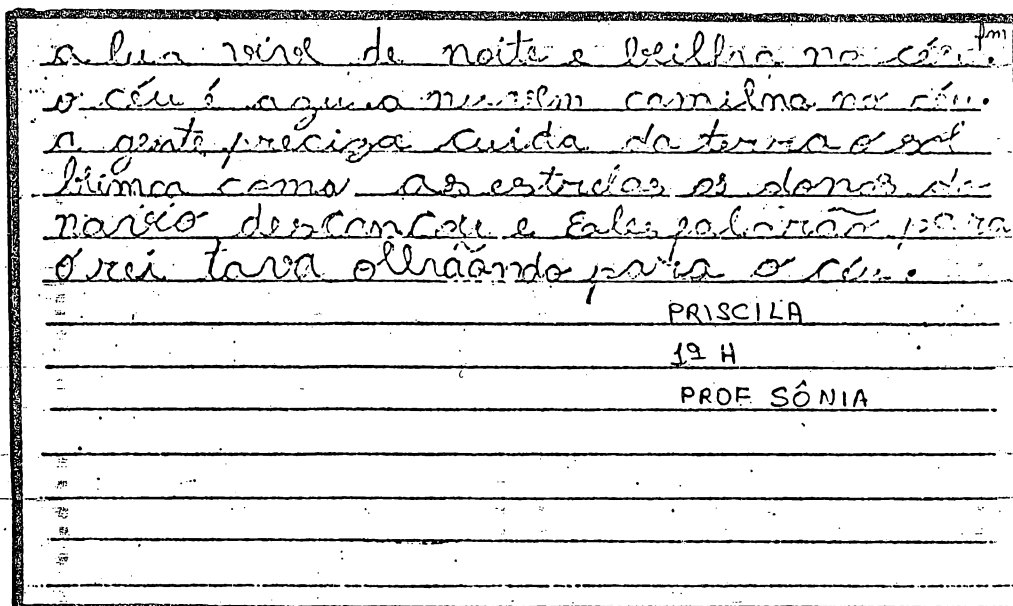 a lua vive de noite e brilha no céu.
o céu é a nuvem camilna no céu.
a gente preciza cuida da terra o sol
brimca como as estrelas os donos do
navio descancou e para
o rei tava olhãando para o céu.
PRISCILA
1ª H
PROF SÔNIA